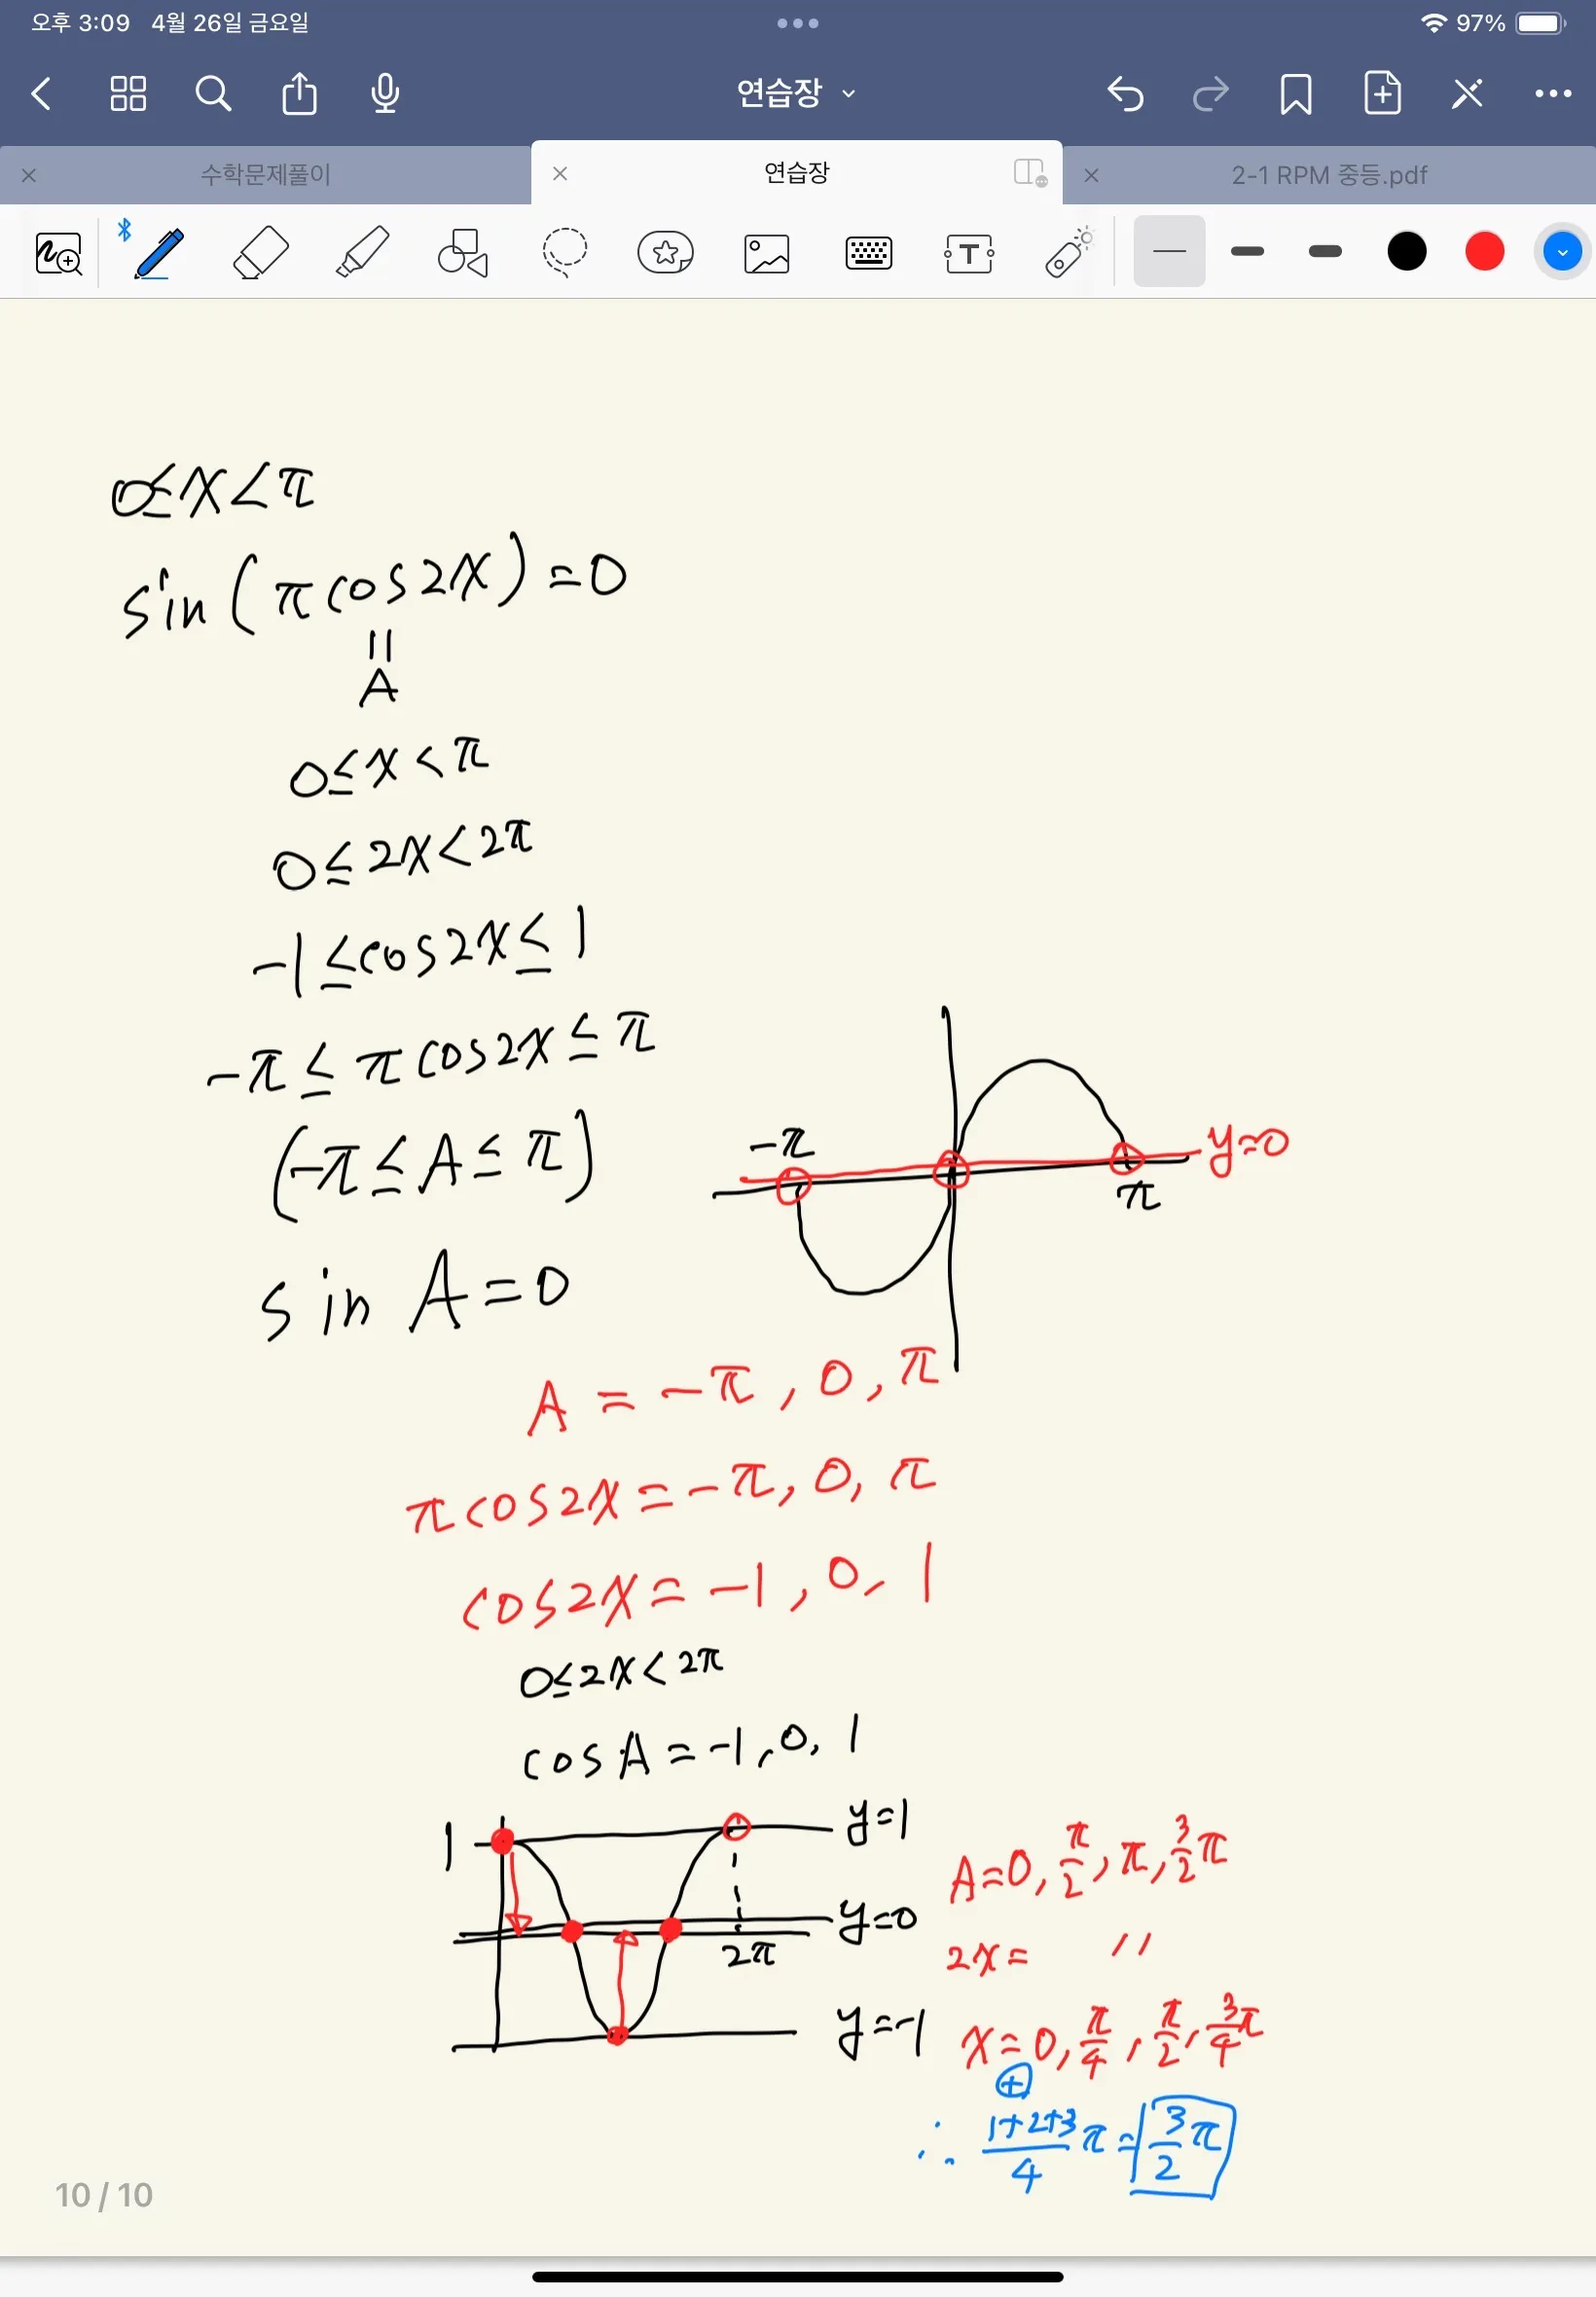 오후 3:09 4월 26일 금요일 97%
연습장
수학문제풀이 연습장 2-1 RPM 중등.pdf
0≤x<π
sin(πcos2x)=0
=
A
0≤x<π
0≤2x<2π
-1≤cos2x≤1
-π≤πcos2x≤π
(-π≤A≤π)
-π π y=0
sin A=0
A=-π, 0, π
πcos2x=-π, 0, π
cos2x=-1, 0, 1
0≤2x<2π
cosA=-1, 0, 1
1 y=1
y=0
2π
y=-1
A=0, π/2, π, 3/2π
2x= 〃
x=0, π/4, π/2, 3/4π
⊕
∴ (1+2+3)/4 π = 3/2π
10 / 10